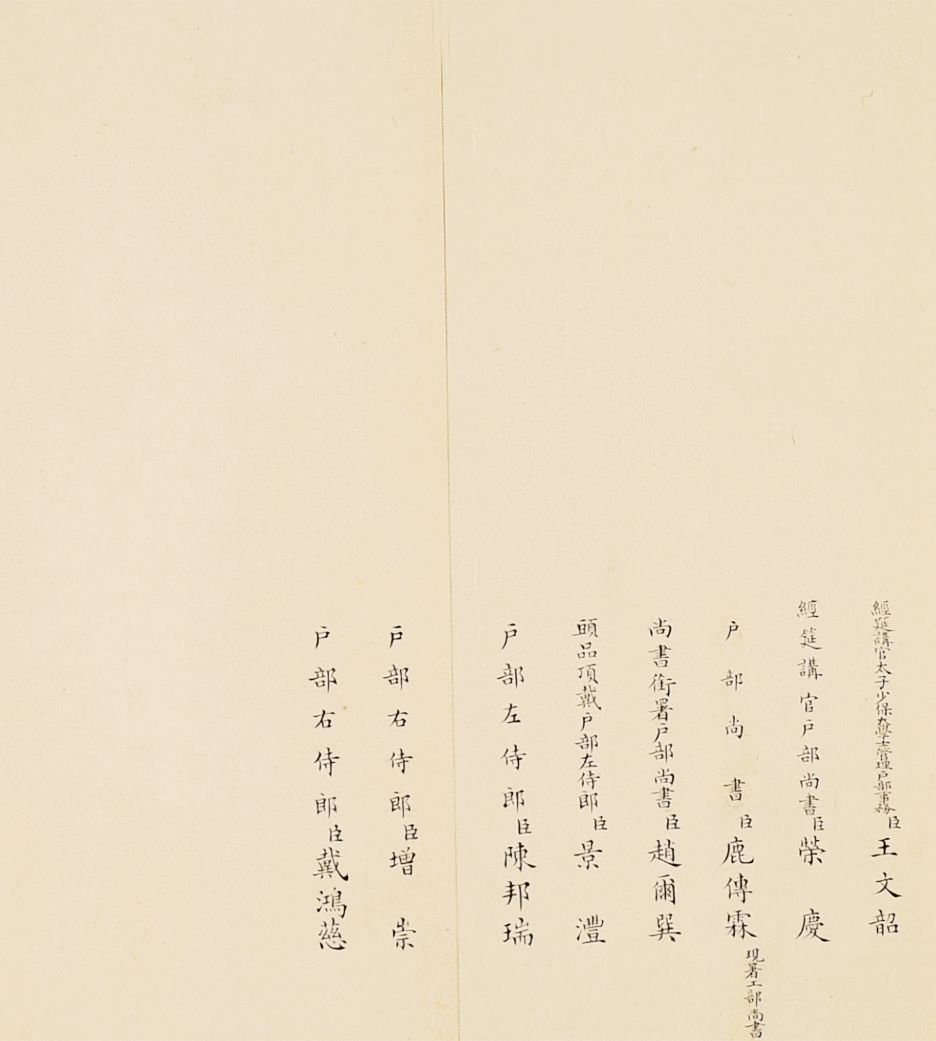 經筵講官太子少保大學士管理戶部事務臣王文韶
經筵講官戶部尚書臣榮慶
戶部尚書臣鹿傳霖現署工部尚書
尚書銜署戶部尚書臣趙爾巽
頭品頂戴戶部左侍郎臣景灃
戶部左侍郎臣陳邦瑞
戶部右侍郎臣增崇
戶部右侍郎臣戴鴻慈